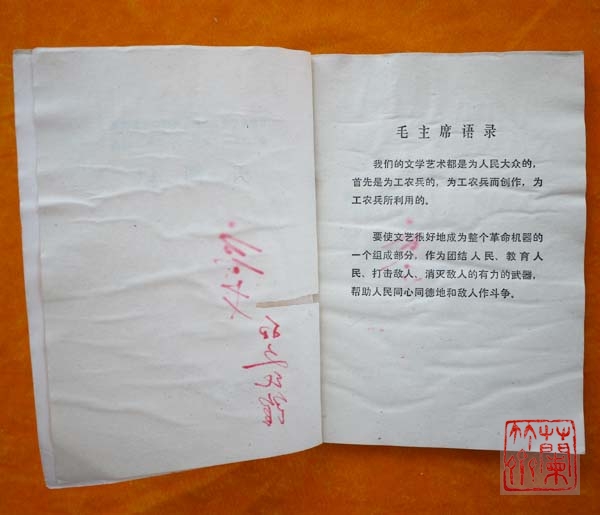 毛主席语录
我们的文学艺术都是为人民大众的，
首先是为工农兵的，为工农兵而创作，为
工农兵所利用的。
要使文艺很好地成为整个革命机器的
一个组成部分，作为团结人民、教育人
民、打击敌人、消灭敌人的有力的武器，
帮助人民同心同德地和敌人作斗争。